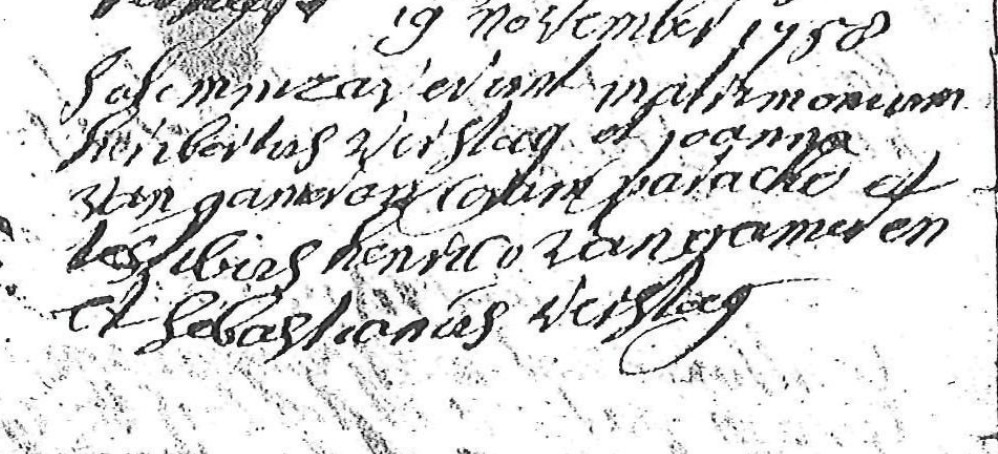 19 november 1758
Solemnizaverunt matrimonium
heribertus Versteeg et joanna
van gameren coram parocho et
testibus henrico van gameren
et Sebastianus Versteeg